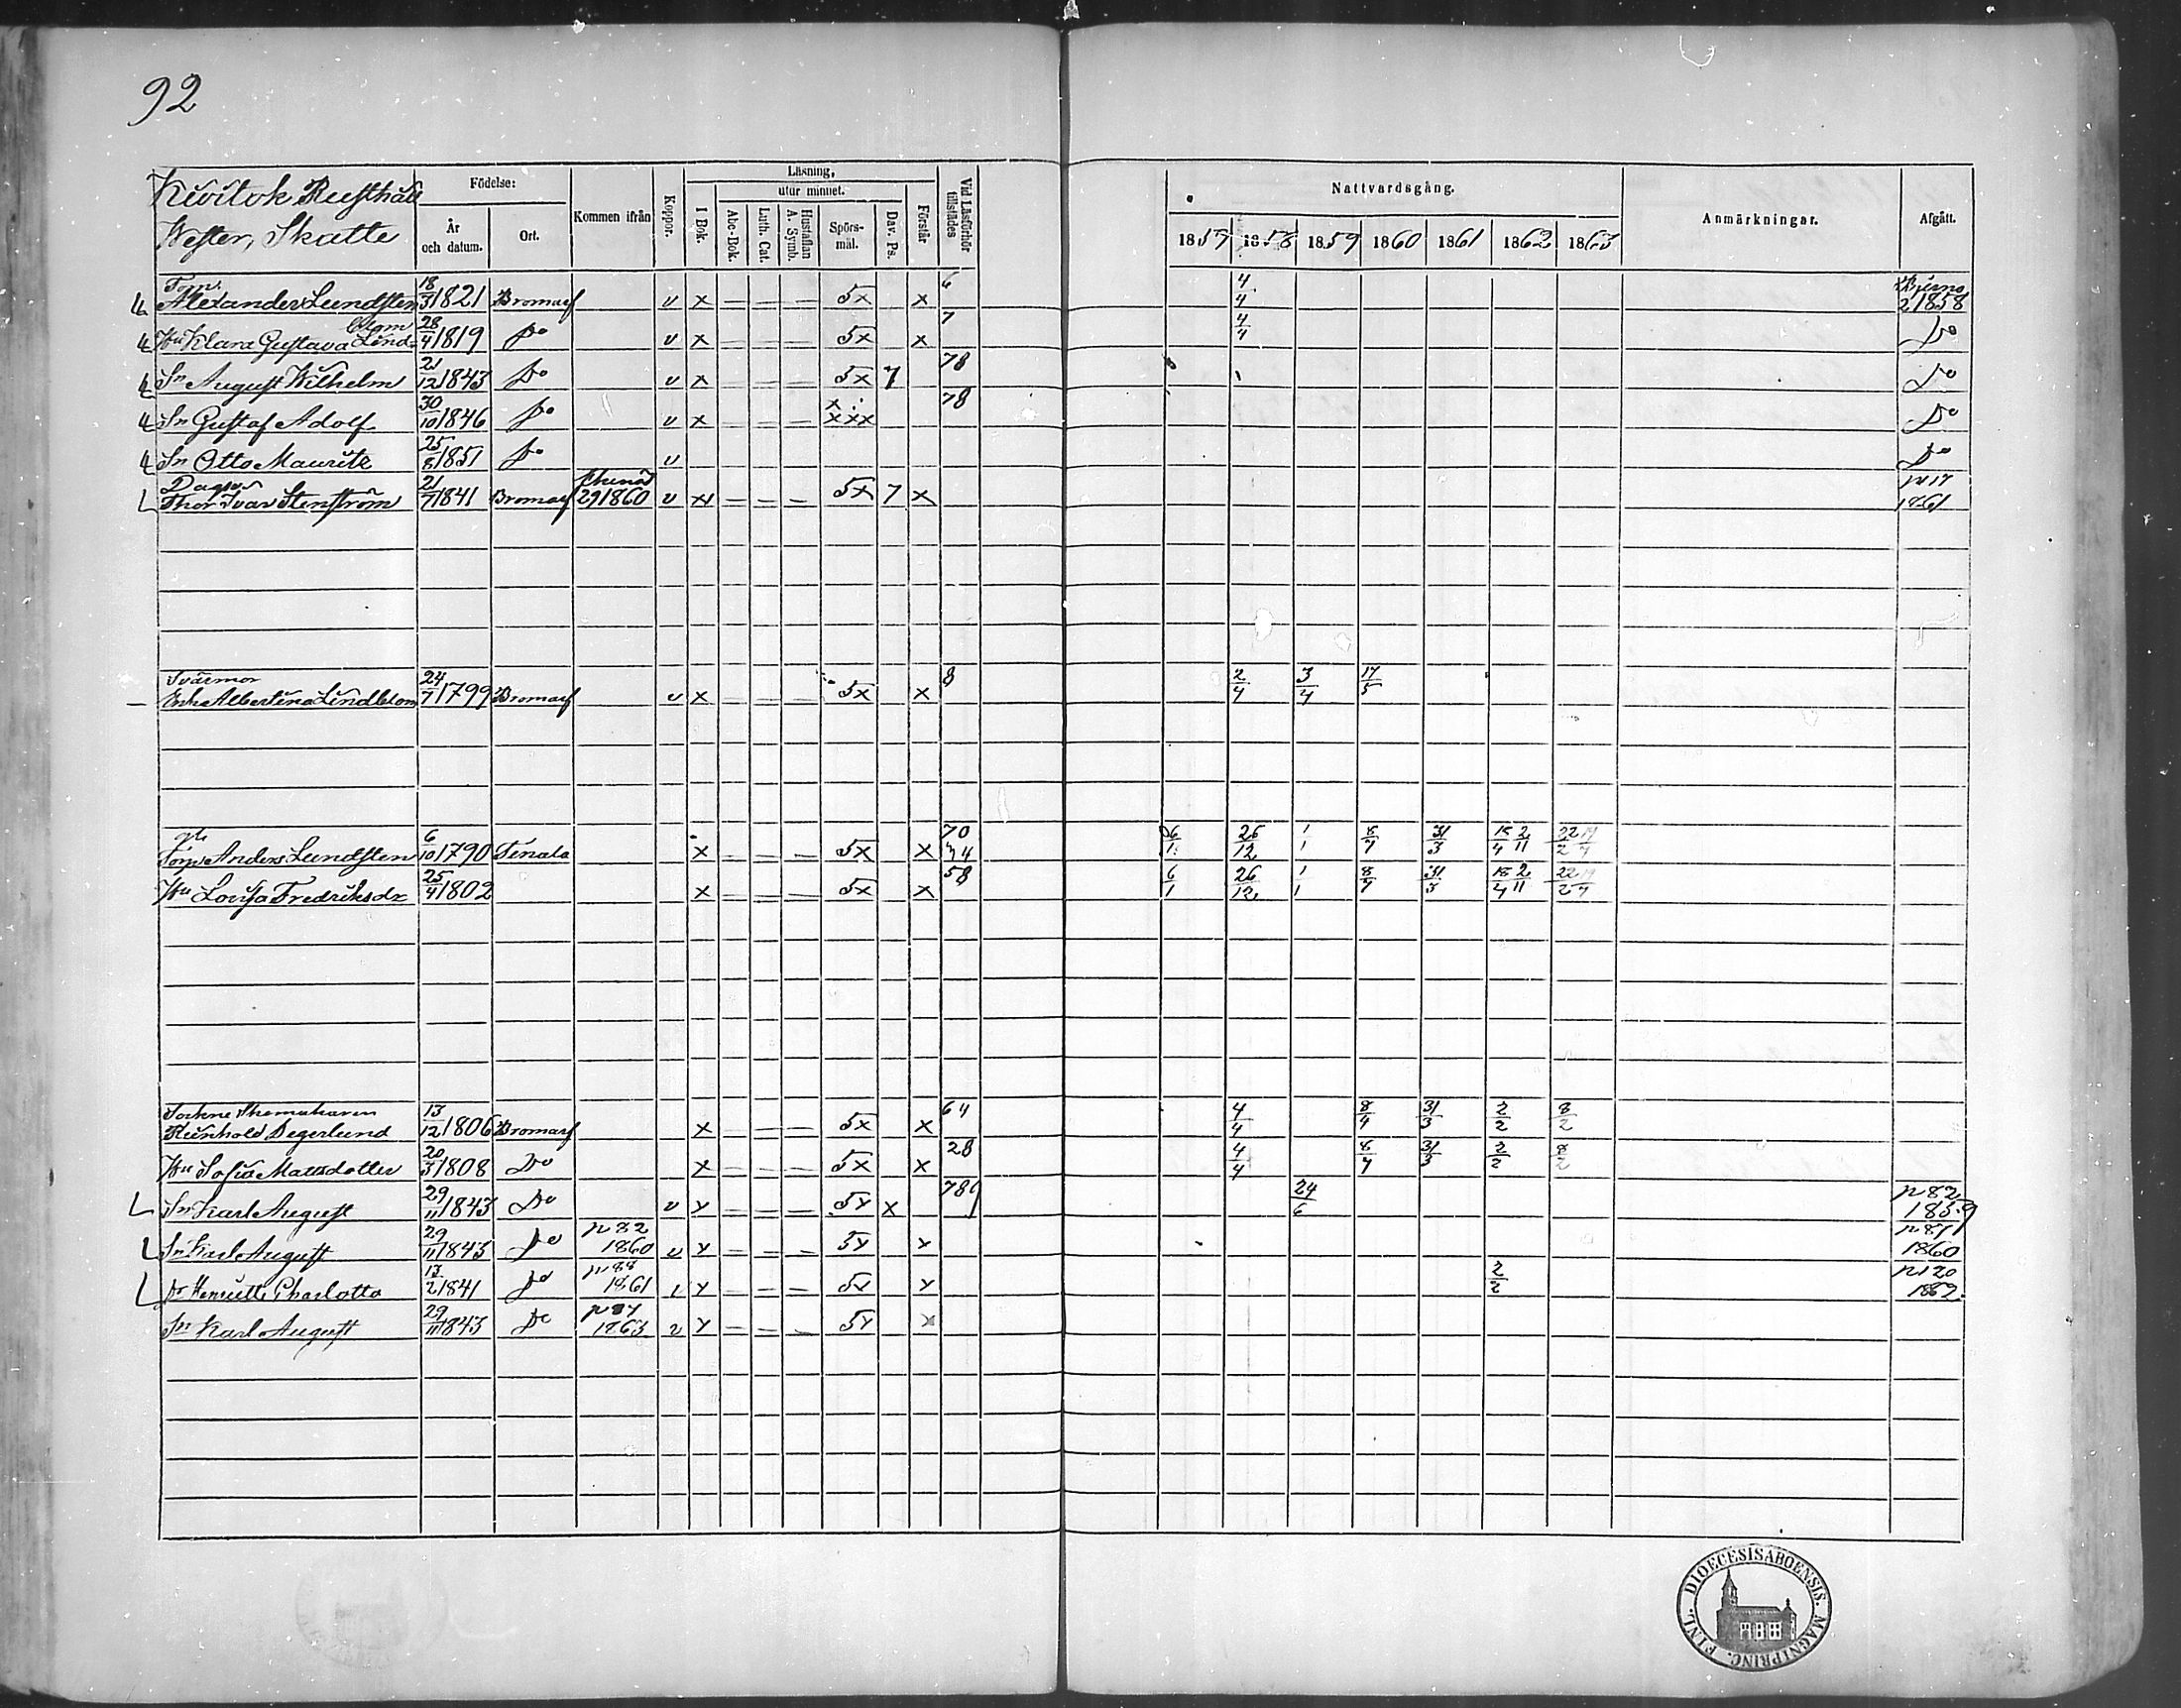 92
Kivitok Rusthåll
Wester, Skatte
Födelse:
År och datum.
Ort.
Kommen ifrån
Koppor.
Läsning,
I Bok.
utur minnet.
Abc-Bok.
Luth. Cat.
Hustaflan A. Symb.
Spörs-mål.
Dav. Ps.
Förstår
Vid Läsförhör tillstädes
Nattvardsgång.
1857 1858 1859 1860 1861 1862 1863
Anmärkningar.
Afgått.
Torp.
Alexander Lundsten 18/3 1821 Bromarf v x — — — 5x x 6 4/4 2 1858
Hu Klara Gustava Lindblom 28/4 1819 Do v x — — — 5x x 7 4/4 Do
Sn August Wilhelm 21/12 1843 Do v x — — — 5x 7 78 Do
Sn Gustaf Adolf 30/10 1846 Do v x — — — x xxx 78 Do
Sn Otto Mauritz 25/8 1851 Do v Do
Thor Ivar Stenström 21/7 1841 Bromarf 29 1860 v x — — — 5x 7 x p 17 1861
Svärmor
Enk. Albertina Lindblom 24/7 1799 Bromarf v x — — — 5x x 8 2/4 3/4 17/5
gl.
Torp. Anders Lundsten 6/10 1790 Tenala x — — — 5x x 70 6/1 26/12 1/1 8/7 31/3 18/4 2/11 22/2 19/7
Hu Lovisa Fredriksdr 25/4 1802 x — — — 5x x 58 6/1 26/12 1/1 8/7 31/3 18/4 2/11 22/2 19/7
Sockne Skomakaren
Reinhold Degerlund 13/12 1806 Bromarf x — — — 5x x 64 4/4 8/4 31/3 2/2 8/2
Hu Sofia Mattsdotter 20/3 1808 Do x — — — 5x x 28 4/4 8/7 31/3 2/2 8/2
Sn Karl August 29/11 1843 Do v x — — — 5x x 789 24/6 p 82 1859
Sn Karl August 29/11 1843 Do p 82 1860 v x — — — 5x x p 871 1860
Dr Henriette Charlotta 13/2 1841 Do p 88 1861 v x — — — 5x x 2/2 p 120 1862.
Sn Karl August 29/11 1843 Do p 87 1863 v x — — — 5x x
DIOECESIS ABOENSIS. MAGNI PRINC. FINL.